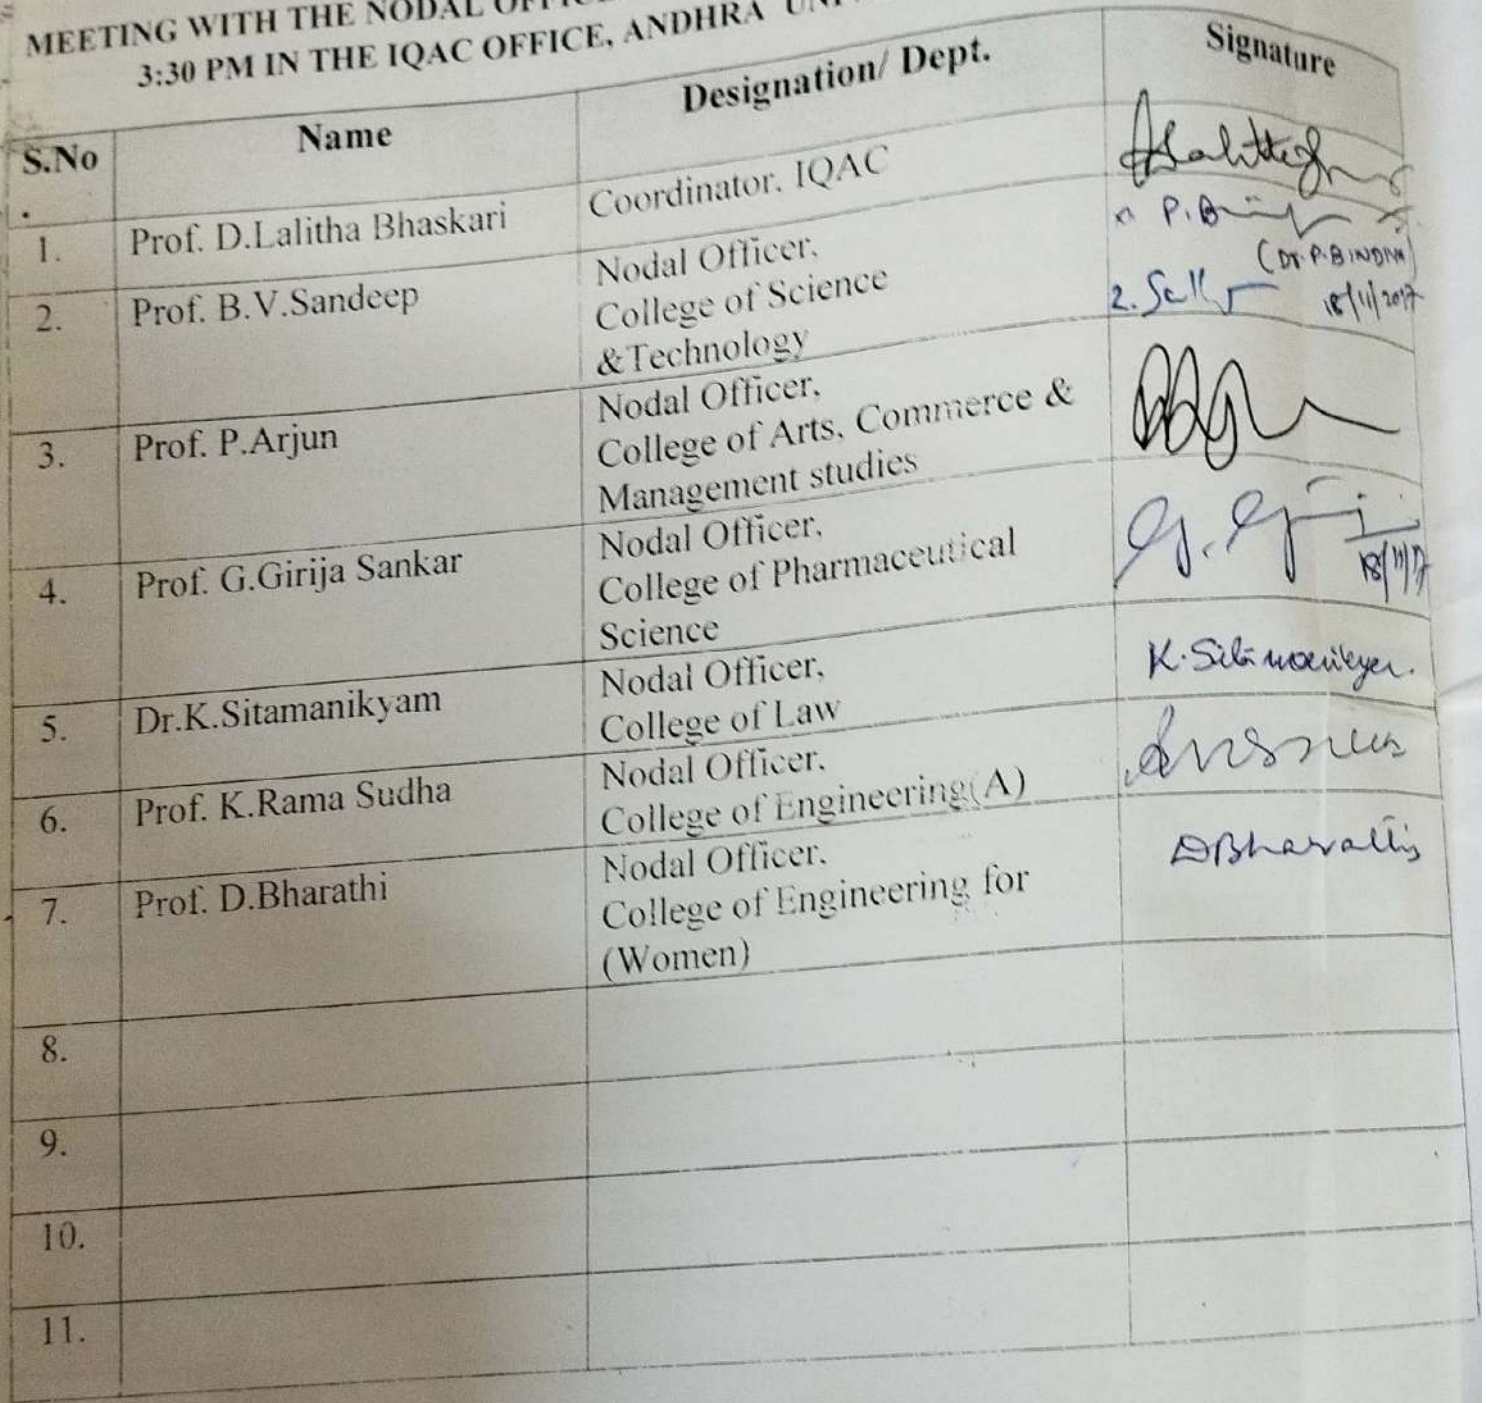 MEETING WITH THE NODAL
3:30 PM IN THE IQAC OFFICE, ANDHRA
S.No. Name Designation/ Dept. Signature
1. Prof. D.Lalitha Bhaskari Coordinator, IQAC
2. Prof. B.V.Sandeep Nodal Officer,
College of Science
&Technology
(Dr. P. BINDIYA)
2.
18/11/2017
3. Prof. P.Arjun Nodal Officer,
College of Arts, Commerce &
Management studies
4. Prof. G.Girija Sankar Nodal Officer,
College of Pharmaceutical
Science
18/11/17
5. Dr.K.Sitamanikyam Nodal Officer,
College of Law
K. Sitamanikyam.
6. Prof. K.Rama Sudha Nodal Officer,
College of Engineering(A)
7. Prof. D.Bharathi Nodal Officer,
College of Engineering for
(Women)
DBharathi
8.
9.
10.
11.